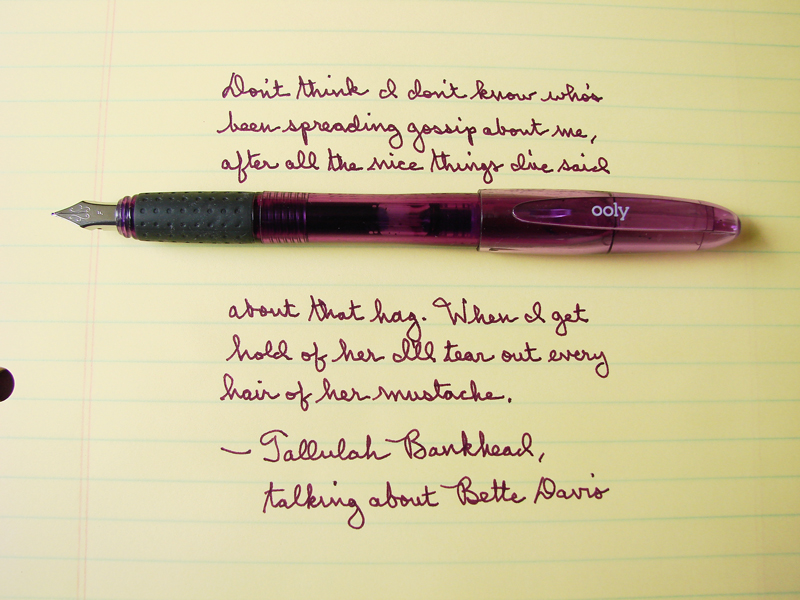 Don't think I don't know who's
been spreading gossip about me,
after all the nice things I've said
ooly
about that hag. When I get
hold of her I'll tear out every
hair of her mustache.
— Tallulah Bankhead,
talking about Bette Davis